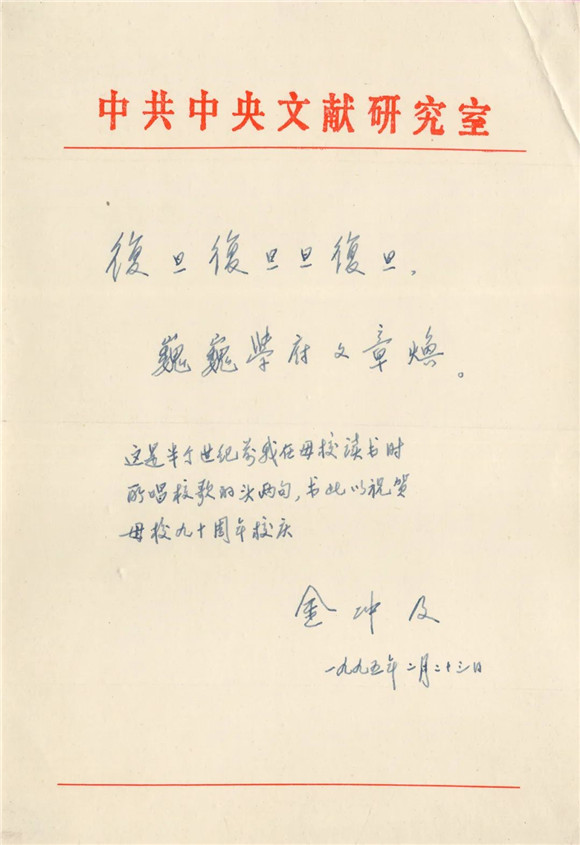 中共中央文献研究室
復旦復旦旦復旦，
巍巍學府文章焕。
这是半个世纪前我在母校读书时
所唱校歌的头两句，书此以祝贺
母校九十周年校庆
金冲及
一九九五年二月二十三日